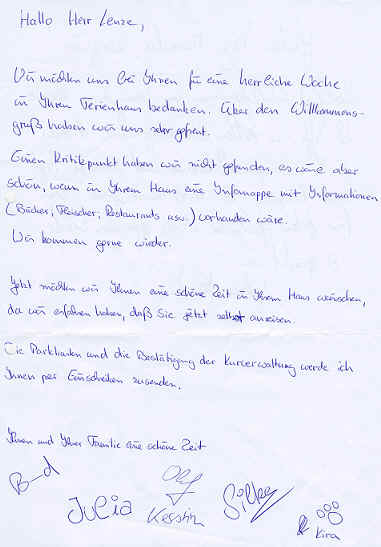 Hallo Herr Lenze,
Wir möchten uns bei Ihnen für eine herrliche Woche
in Ihrem Ferienhaus bedanken. Über den Willkommens-
gruß haben wir uns sehr gefreut.
Einen Kritikpunkt haben wir nicht gefunden, es wäre aber
schön, wenn in Ihrem Haus eine Infomappe mit Informationen
(Bäcker, Fleischer, Restaurants usw.) vorhanden wäre.
Wir kommen gerne wieder.
Jetzt möchten wir Ihnen eine schöne Zeit in Ihrem Haus wünschen,
da wir erfahren haben, daß Sie jetzt selbst anreisen.
Die Parkkarten und die Bestätigung der Kurverwaltung werde ich
Ihnen per Einschreiben zusenden.
Ihnen und Ihrer Familie eine schöne Zeit
Julia Kerstin Olaf Silke Kira